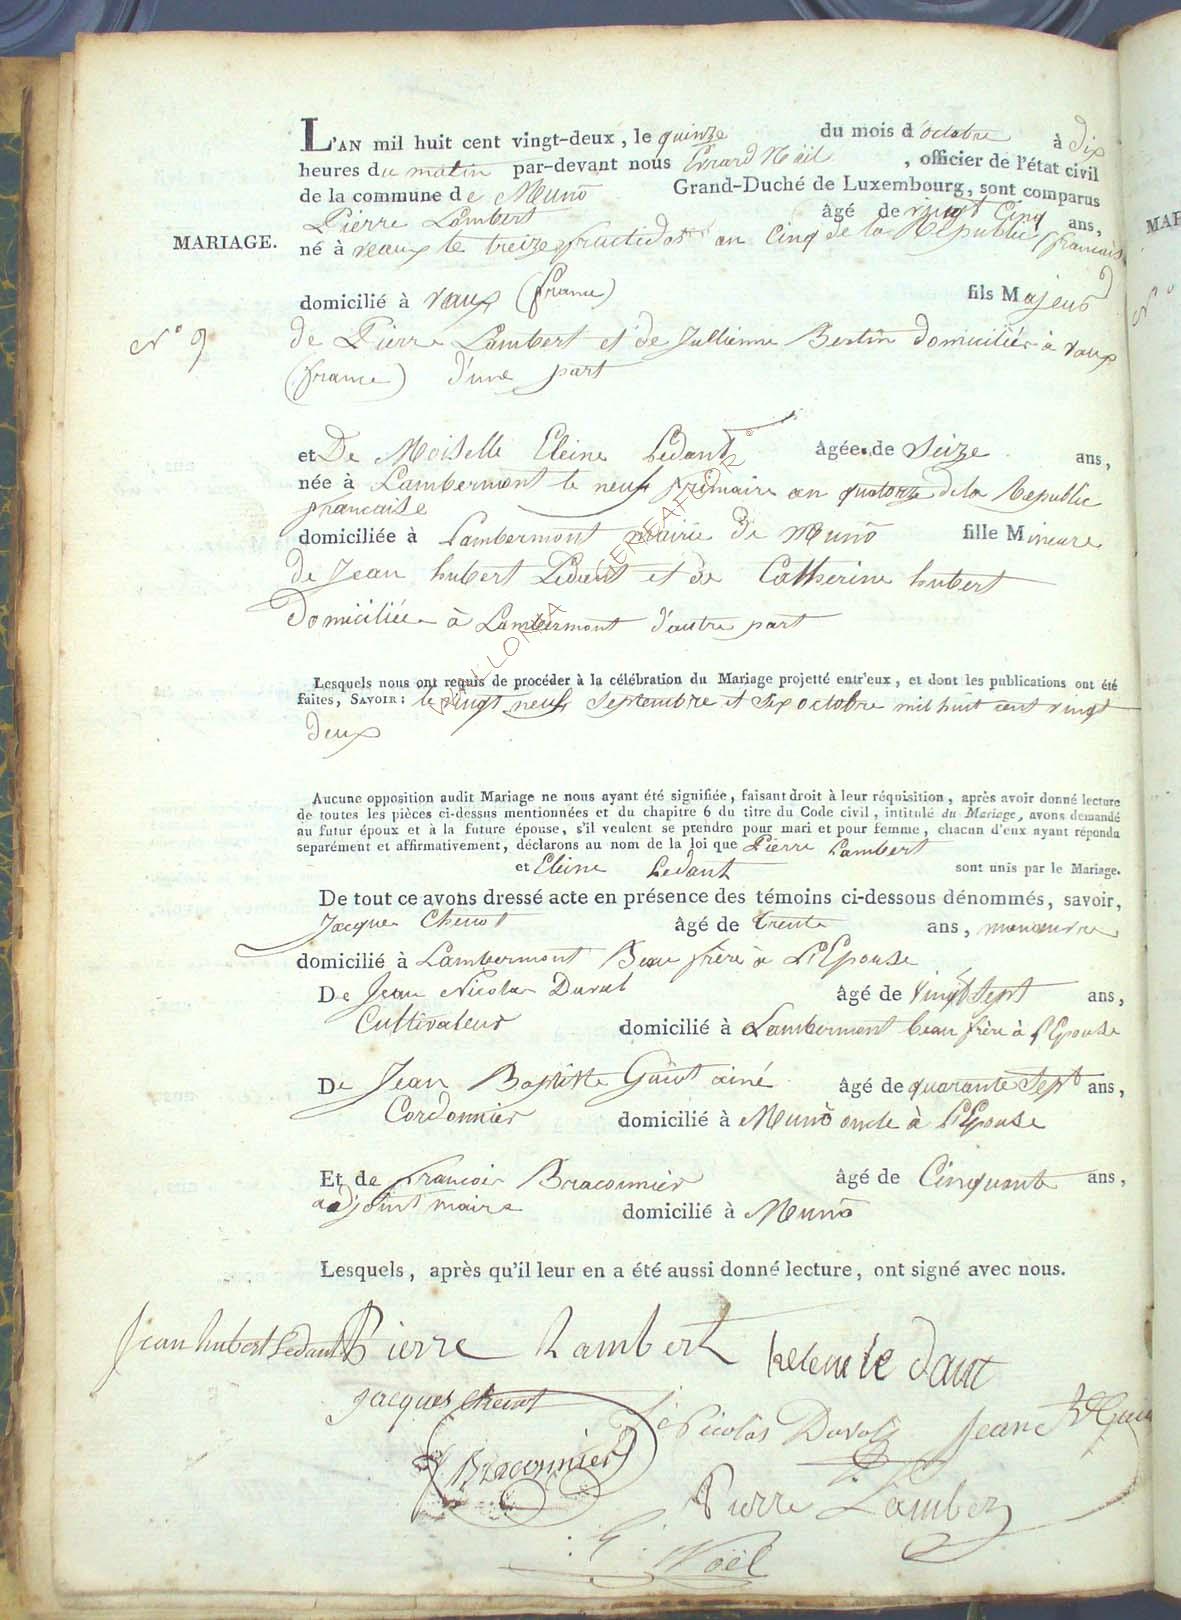 L'AN mil huit cent vingt-deux, le quinze du mois d'octobre à dix
heures du matin par-devant nous Errard Noël, officier de l'état civil
de la commune de Muno Grand-Duché de Luxembourg, sont comparus
Pierre Lambert âgé de vingt Cinq ans,
MARIAGE.
né à Veaux le treize fructidor an Cinq de la Republic (francais
domicilié à Vaux (france) fils Majeur
N° 9
de Pierre Lambert et de Jullienne Bertin domiciliés à Vaux
(france) d'une part
et De Moiselle Eleine Ledant âgée de Seize ans,
née à Lambermont le neuf frimaire an quatorze de la Republic
francaise
domiciliée à Lambermont mairie de Muno fille Mineure
de Jean hubert Ledant et de Catherine hubert
Domiciliée à Lambermont d'autre part
WALLONIA GENEAFTOR
Lesquels nous ont requis de procéder à la célébration du Mariage projetté entr'eux, et dont les publications ont été
faites, SAVOIR: le vingt neuf Septembre et Six octobre mil huit cent vingt
deux
Aucune opposition audit Mariage ne nous ayant été signifiée, faisant droit à leur réquisition, après avoir donné lecture
de toutes les pièces ci-dessus mentionnées et du chapitre 6 du titre du Code civil, intitulé du Mariage, avons demandé
au futur époux et à la future épouse, s'il veulent se prendre pour mari et pour femme, chacun d'eux ayant répondu
separément et affirmativement, déclarons au nom de la loi que Pierre Lambert
et Eleine Ledant sont unis par le Mariage.
De tout ce avons dressé acte en présence des témoins ci-dessous dénommés, savoir,
Jacque Chenot âgé de trente ans, manoeuvre
domicilié à Lambermont Beau frère à L'Epouse
De Jean Nicolas Duval âgé de Vingt Sept ans,
Cultivateur domicilié à Lambermont beau frère à l'Epouse
De Jean Baptiste Guiot ainé âgé de quarante Sept ans,
Cordonnier domicilié à Muno oncle à L'Epouse
Et de francois Braconnier âgé de Cinquante ans,
adjoint maire domicilié à Muno
Lesquels, après qu'il leur en a été aussi donné lecture, ont signé avec nous.
Jean hubert Ledant Pierre Lambert helene le dant
Jacques Chenot
Nicolas Duval Jean
Braconnier
Pierre Lambert
Noël
MAR
N°